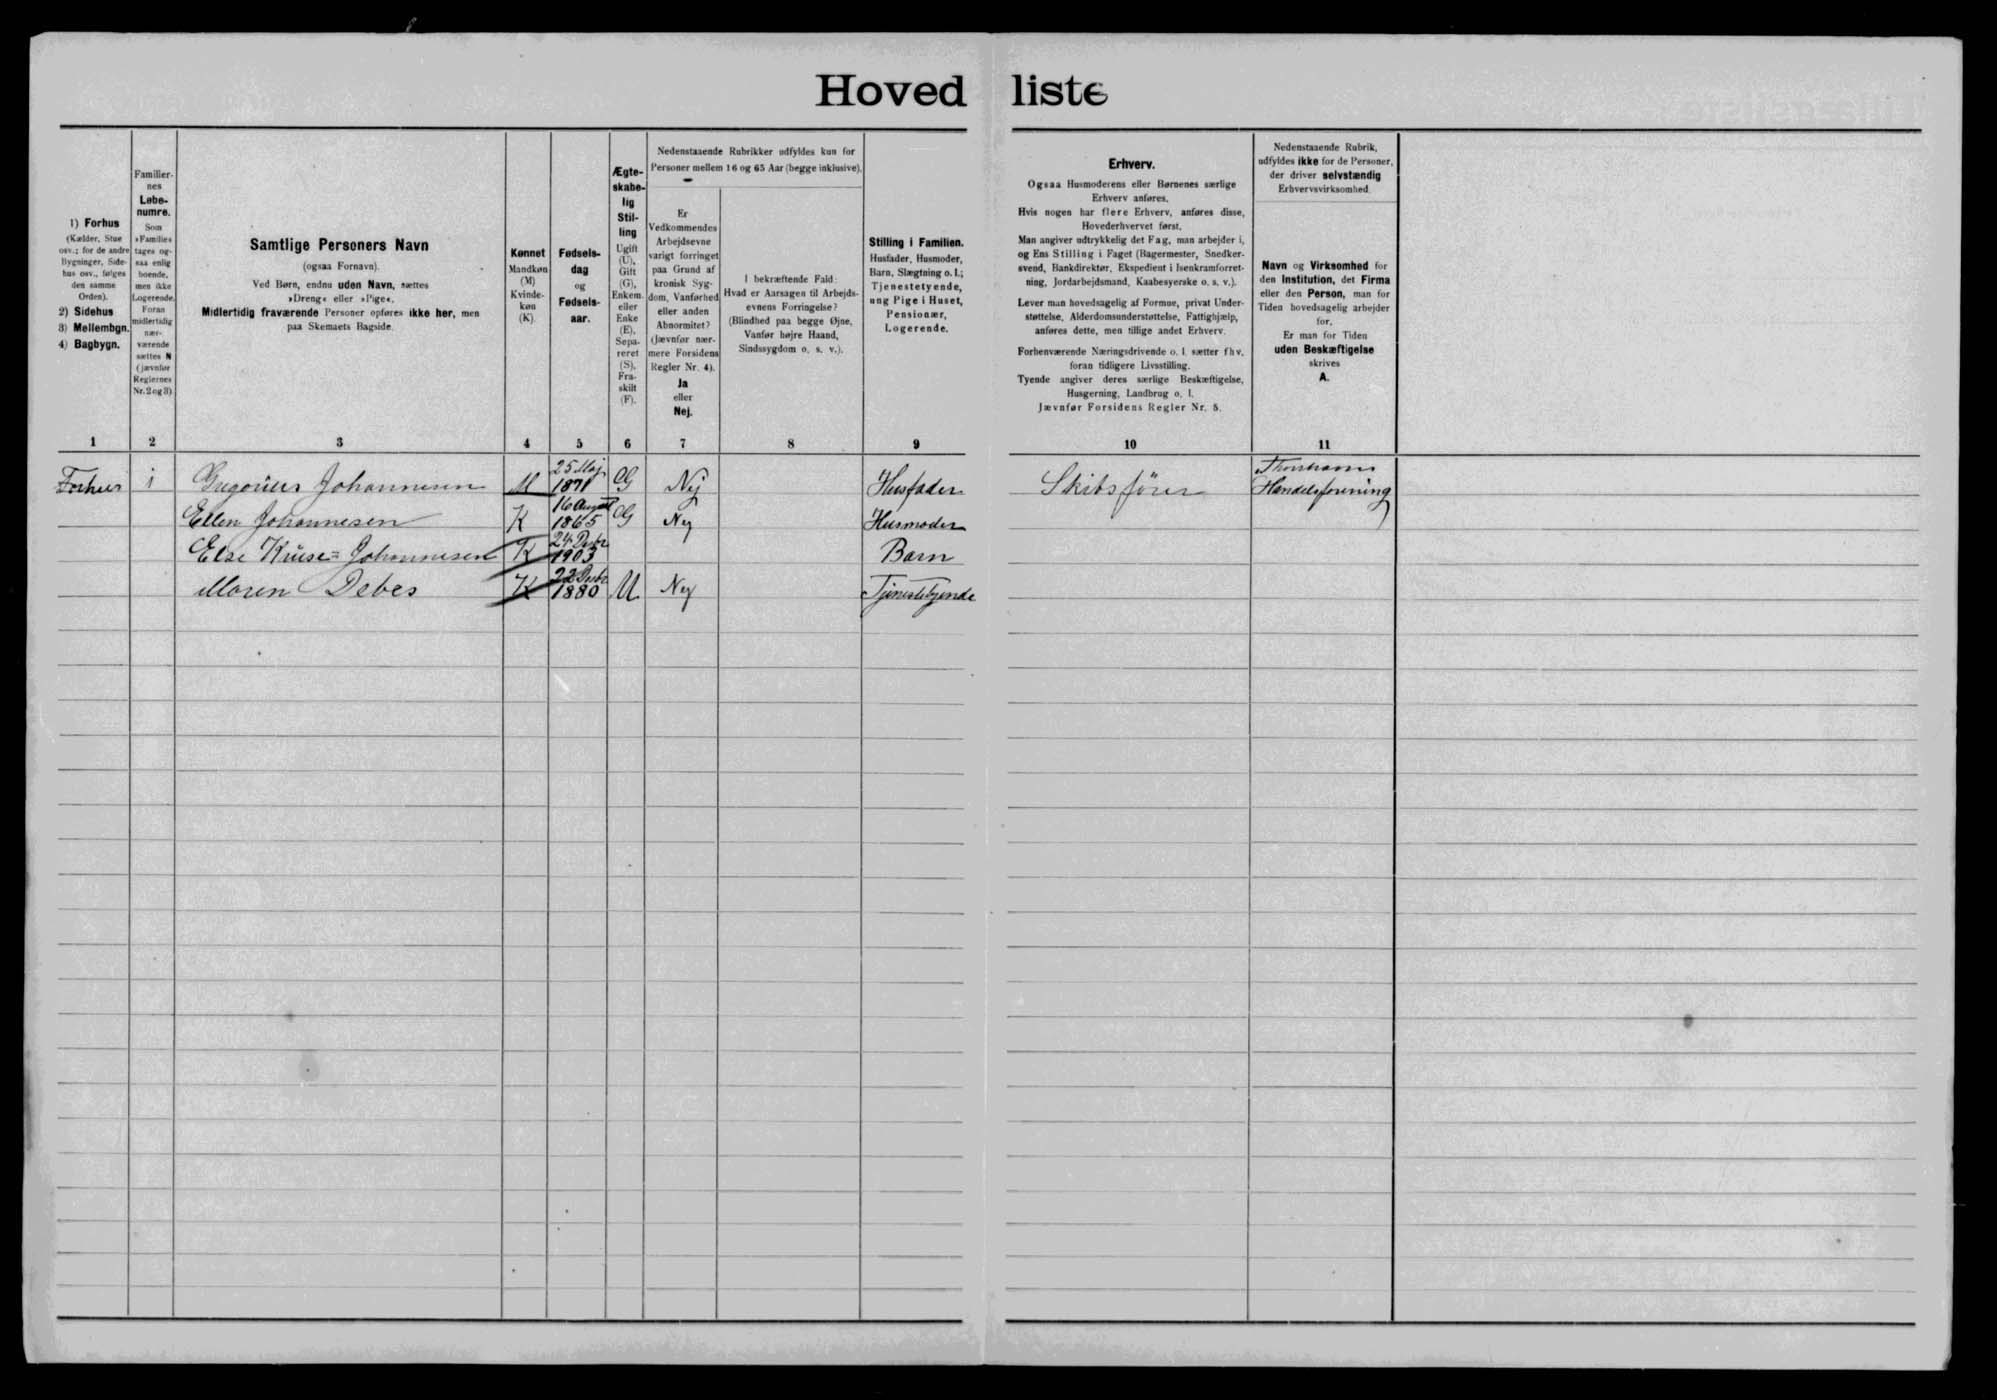 Hoved liste
1) Forhus
(Kælder, Stue
osv.; for de andre
Bygninger, Side-
hus osv., følges
den samme
Orden).
2) Sidehus
3) Mellembgn.
4) Bagbygn.
Familier-
nes
Løbe-
numre.
Som
»Familie«
tages og-
saa enlig
boende,
men ikke
Logerende.
Foran
midlertidig
nær-
værende
sættes N
(jævnfør
Reglernes
Nr. 2 og 3)
Samtlige Personers Navn
(ogsaa Fornavn).
Ved Børn, endnu uden Navn, sættes
»Dreng« eller »Pige«.
Midlertidig fraværende Personer opføres ikke her, men
paa Skemaets Bagside.
Kønnet
Mandkøn
(M)
Kvinde-
køn
(K).
Fødsels-
dag
og
Fødsels-
aar.
Ægte-
skabe-
lig
Stil-
ling
Ugift
(U),
Gift
(G),
Enkem.
eller
Enke
(E),
Sepa-
reret
(S),
Fra-
skilt
(F).
Nedenstaaende Rubrikker udfyldes kun for
Personer mellem 16 og 65 Aar (begge inklusive).
Er
Vedkommendes
Arbejdsevne
varigt forringet
paa Grund af
kronisk Syg-
dom, Vanførhed
eller anden
Abnormitet?
(Jævnfør nær-
mere Forsidens
Regler Nr. 4).
Ja
eller
Nej.
I bekræftende Fald:
Hvad er Aarsagen til Arbejds-
evnens Forringelse?
(Blindhed paa begge Øjne,
Vanfør højre Haand,
Sindssygdom o. s. v.).
Stilling i Familien.
Husfader, Husmoder,
Barn, Slægtning o. l.;
Tjenestetyende,
ung Pige i Huset,
Pensionær,
Logerende.
Erhverv.
Ogsaa Husmoderens eller Børnenes særlige
Erhverv anføres.
Hvis nogen har flere Erhverv, anføres disse,
Hovederhvervet først.
Man angiver udtrykkelig det Fag, man arbejder i,
og Ens Stilling i Faget (Bagermester, Snedker-
svend, Bankdirektør, Ekspedient i Isenkramforret-
ning, Jordarbejdsmand, Kaabesyerske o. s. v.).
Lever man hovedsagelig af Formue, privat Under-
støttelse, Alderdomsunderstøttelse, Fattighjælp,
anføres dette, men tillige andet Erhverv.
Forhenværende Næringsdrivende o. l. sætter fhv.
foran tidligere Livsstilling.
Tyende angiver deres særlige Beskæftigelse,
Husgerning, Landbrug o. l.
Jævnfør Forsidens Regler Nr. 5.
Nedenstaaende Rubrik,
udfyldes ikke for de Personer,
der driver selvstændig
Erhvervsvirksomhed.
Navn og Virksomhed for
den Institution, det Firma
eller den Person, man for
Tiden hovedsagelig arbejder
for.
Er man for Tiden
uden Beskæftigelse
skrives
A.
1 2 3 4 5 6 7 8 9 10 11
Forhus 1 Gregorius Johannesen M 25 Maj 1871 G Nej Husfader Skibsfører Thorshavns Handelsforening
Ellen Johannesen K 16 August 1865 G Nej Husmoder
Else Kruse=Johannesen K 24 Decbr 1903 Barn
Maren Debes K 22 Decbr 1880 U Nej Tjenestetyende